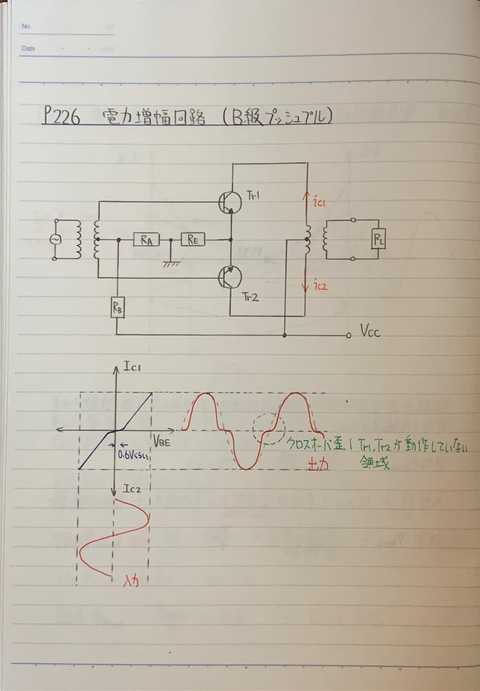 No.
Date
P226 電力増幅回路 (B級プッシュプル)
Tr1
ic1
RA
RE
RL
Tr2
ic2
RB
Vcc
Ic1
VBE
0.6V
クロスオーバ歪
Tr1, Tr2が動作していない
領域
出力
Ic2
入力